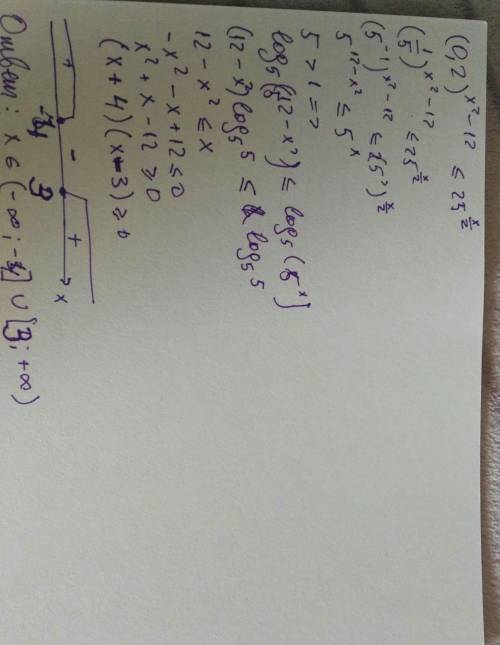 (0,2)^{x²-12} ≤ 25^{x/2}
(1/5)^{x²-12} ≤ 25^{x/2}
(5^{-1})^{x²-12} ≤ (5²)^{x/2}
5^{12-x²} ≤ 5^x
5 > 1 =>
log₅(12-x²) ≤ log₅(5^x)
(12-x²) log₅5 ≤ x log₅5
12 - x² ≤ x
-x² - x + 12 ≤ 0
x² + x - 12 ≥ 0
(x+4)(x-3) ≥ 0
+ - + x
-4 3
Ответ: x ∈ (-∞; -4] ∪ [3; +∞)